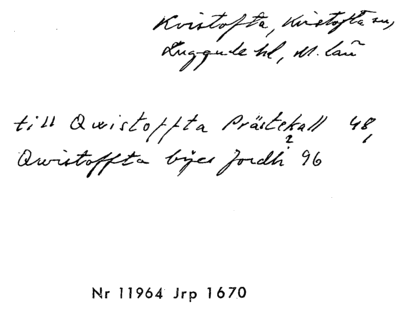 Kvistofta, Kvistofta sn,
Luggude hd, M. län
till Qwistoffta Prästekall 48,
?
Qwistoffta byes Jordh 96
Nr 11964 Jrp 1670